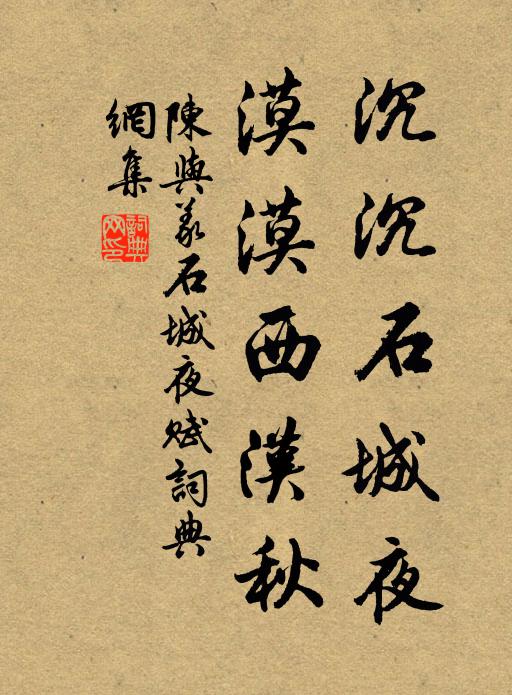 沉沉石城夜
漠漠西漢秋
陳與義石城夜賦詞典
網集
詞典
網印